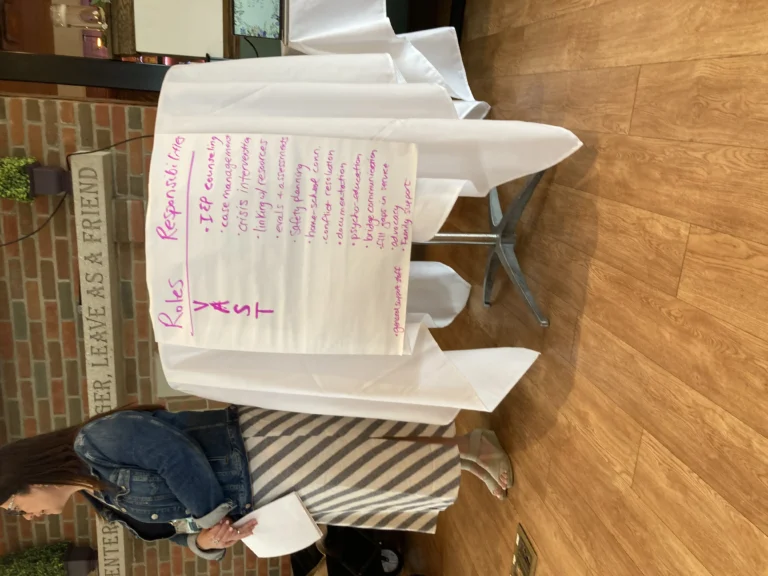 Roles Responsibilities
V
A
S
T
• IEP counseling
• case management
• crisis intervention
• linking w/ resources
• evals + assessments
• safety planning
• home-school conn.
• conflict resolution
• documentation
• psycho-education
• bridge communication
• fill gaps in service
• advocacy
• family support
• general support staff
ENTER
GER, LEAVE AS A FRIEND